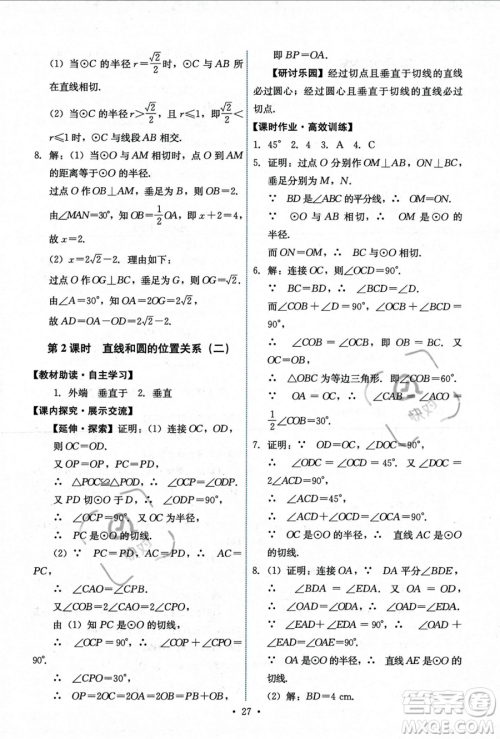 (1) 当⊙C 的半径 r=√2/2 时，⊙C 与 AB 所
在直线相切.
(2) 当⊙C 的半径 r≤√2/2 时，且 r≤1，即
r≤1 时，直线 AB 与⊙C 相交.
8. 解：(1) 当⊙O 与 AM 相切时，点 O 到 AM
的距离等于⊙O 的半径.
过点 O 作 OB⊥AM，垂足为 B，则 OB=2.
由∠MAN=30°，知 OB=1/2 OA，即 x+2=4，
故 x=2.
(2) x=2. 理由如下：
过点 O 作 OB⊥AC，垂足为 B.
由∠A=30°，知 OA=2OB=2×2=4，
故 OA-OD=x=2.
第 2 课时 直线和圆的位置关系（二）
【教材助读·自主学习】
1. 外端 垂直于 2. 垂直
【课内探究·展示交流】
【延伸·探索】证明：(1) 连接 OC，OD，则
OC=OD.
又 OP=OP，PC=PD，
∴ △POC≌△POD，∴ ∠OCP=∠ODP.
∵ PD⊥OB，∴ ∠ODP=90°，
∴ ∠OCP=90°. ∵ OC 为半径，
∴ PC 是⊙O 的切线.
(2) ∵ PO=PA，OC=CA，
∴ ∠CAO=∠CPB.
∵ PC 为⊙O 的切线，
∴ ∠OCP=90°，∴ ∠CAO=∠CPB=
90°.
∴ OP=2OC=2OA=OA+OB，
即 BP=OA.
【研讨乐园】经过切点且垂直于切线的直线
必过圆心；经过圆心且垂直于切线的直线必过
切点.
【课时作业·高效训练】
1. 45° 2. 4 3. A 4. C
5. 证明：过点 O 分别作 OM⊥AB，ON⊥
BC，垂足分别为 M，N.
∵ BD 是∠ABC 的平分线，∴ OM=ON.
∵ ⊙O 与 AB 相切，∴ OM 是⊙O 的
半径.
而 ON=OM，∴ BC 与⊙O 相切.
6. 解：连接 OC，则∠OCD=90°.
∵ ∠D=30°，∴ ∠COB=60°.
∵ OC=OB，
∴ △OBC 为等边三角形，
∴ ∠COB=∠OBC=60°，∴ ∠A=
1/2∠COB=30°.
7. 证明：∵ OD⊥AC，∴ ∠COD=90°，
∴ ∠ODC=∠AOC-∠COD=45°.
∵ OC=OD，∴ ∠OCD=∠ODC=45°.
∵ ∠ACD=45°，
∴ ∠ACD+∠OCD=∠OCA=90°.
∵ OC 为半径，∴ AC 是⊙O 的切线.
8. (1) 证明：∵ DA 平分∠BDE，
∴ ∠BDA=∠EDA. ∵ OA=OD，
∴ ∠ODA=∠OAD，∴ ∠OAD=∠EDA.
∵ ∠EAD+∠EDA=90°，
∴ ∠EAD+∠OAD=90°，即∠OAE=90°.
∵ OA 是半径，∴ AE 是⊙O 的切线.
(2) 解：BD=4 cm.
· 27 ·